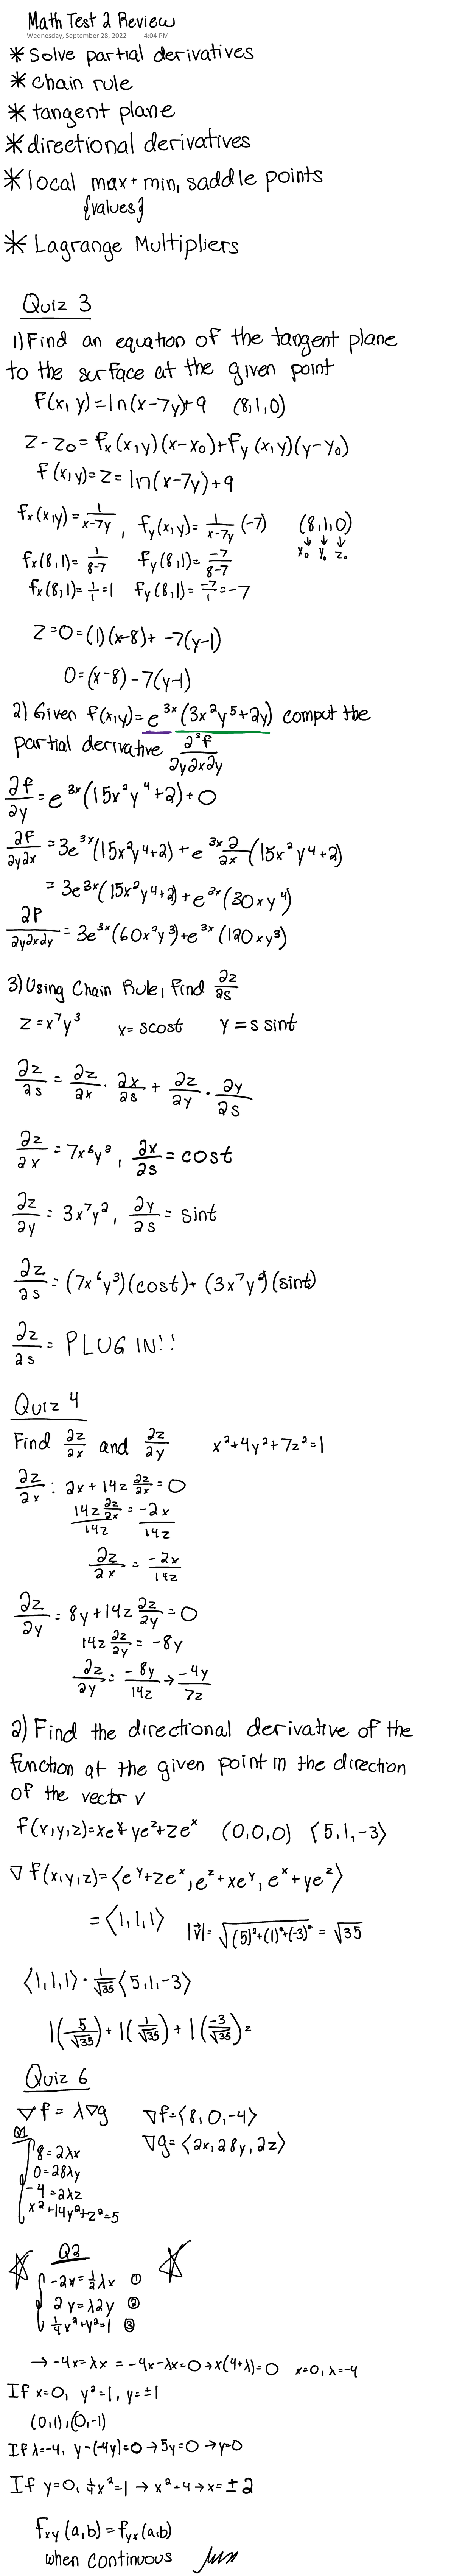 Math Test 2 Review
Wednesday, September 28, 2022 4:04 PM
* Solve partial derivatives
* chain rule
* tangent plane
* directional derivatives
* local max + min, saddle points
{values}
* Lagrange Multipliers
Quiz 3
1) Find an equation of the tangent plane
to the surface at the given point
f(x,y)=ln(x-7y)+9 (8,1,0)
z-z₀=fₓ(x,y)(x-x₀)+f_y(x,y)(y-y₀)
f(x,y)=z=ln(x-7y)+9
fₓ(x,y)=1/(x-7y), f_y(x,y)=1/(x-7y)(-7) (8,1,0)
x₀ y₀ z₀
fₓ(8,1)=1/(8-7) f_y(8,1)=-7/(8-7)
fₓ(8,1)=1/1=1 f_y(8,1)=-7/1=-7
z=0=(1)(x-8)+ -7(y-1)
0=(x-8)-7(y-1)
2) Given f(x,y)=e^3x(3x²y⁵+2y) comput the
partial derivative ∂³f/∂y∂x∂y
∂f/∂y=e^3x(15x²y⁴+2)+0
∂f/∂y∂x=3e^3x(15x²y⁴+2)+e^3x ∂/∂x(15x²y⁴+2)
=3e^3x(15x²y⁴+2)+e^3x(30xy⁴)
∂f/∂y∂x∂y=3e^3x(60x²y³)+e^3x(120xy³)
3) Using Chain Rule, Find ∂z/∂s
z=x⁷y³ x=scost y=s sint
∂z/∂s=∂z/∂x·∂x/∂s+∂z/∂y·∂y/∂s
∂z/∂x=7x⁶y³, ∂x/∂s=cost
∂z/∂y=3x⁷y², ∂y/∂s=sint
∂z/∂s=(7x⁶y³)(cost)+(3x⁷y²)(sint)
∂z/∂s=PLUG IN!!
Quiz 4
Find ∂z/∂x and ∂z/∂y x²+4y²+7z²=1
∂z/∂x: 2x+14z ∂z/∂x=0
14z ∂z/∂x/14z=-2x/14z
∂z/∂x=-2x/14z
∂z/∂y=8y+14z ∂z/∂y=0
14z ∂z/∂y=-8y
∂z/∂y=-8y/14z→-4y/7z
2) Find the directional derivative of the
function at the given point in the direction
of the vector v
f(x,y,z)=xe^y+ye^z+ze^x (0,0,0) ⟨5,1,-3⟩
∇f(x,y,z)=⟨e^y+ze^x,e^z+xe^y,e^x+ye^z⟩
=⟨1,1,1⟩ |v⃗|=√((5)²+(1)²+(-3)²)=√35
⟨1,1,1⟩·1/√35⟨5,1,-3⟩
1(5/√35)+1(1/√35)+1(-3/√35)=
Quiz 6
∇f=λ∇g ∇f=⟨8,0,-4⟩
Q1 ∇g=⟨2x,28y,2z⟩
8=2λx
0=28λy
-4=2λz
x²+14y²+z²=5
Q2
-2x=1/2λx ①
2y=λ2y ②
1/4x²+y²=1 ③
→-4x=λx=-4x-λx=0→x(4+λ)=0 x=0,λ=-4
If x=0, y²=1, y=±1
(0,1),(0,-1)
If λ=-4, y-(-4y)=0→5y=0→y=0
If y=0, 1/4x²=1→x²=4→x=±2
f_xy(a,b)=f_yx(a,b)
when continuous